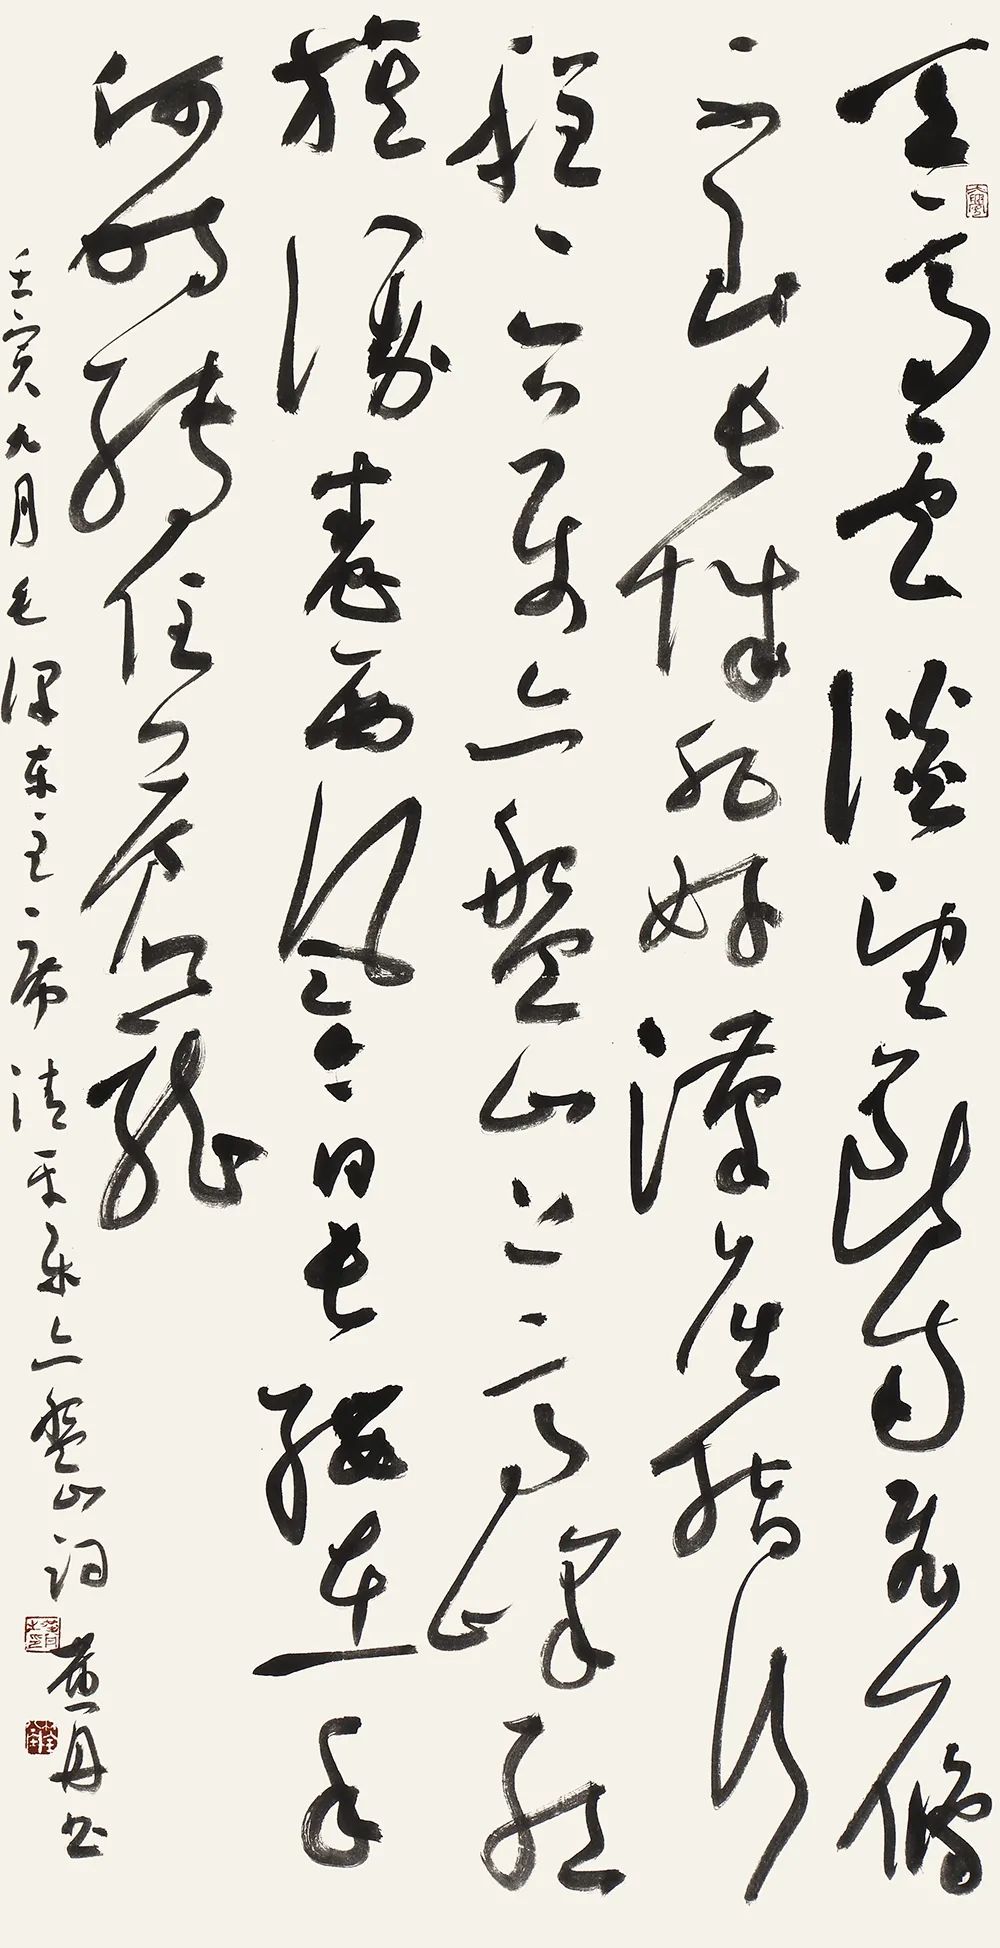 天高云淡望断南飛雁
不到长城非好漢屈指行
程二萬六盤山上高峰紅
旗漫卷西風今日长纓在手
何时縛住蒼龍
壬寅九月毛泽东主席清平乐六盘山词
黄丹书